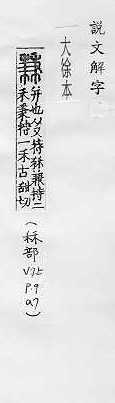 說文解字
大徐本
兼 并也从又持秝兼持二
禾秉持一禾古甜切
(秝部
V7上
P.9
a7)